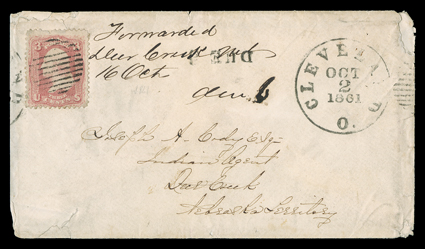 Forwarded
Deer Creek
16 Oct
DUE
Due 6
CLEVELAND
OCT
2
1861
O.
3 3
U.S
Joseph A. Cody Esq
Indian Agent
Deer Creek
Nebraska Territory